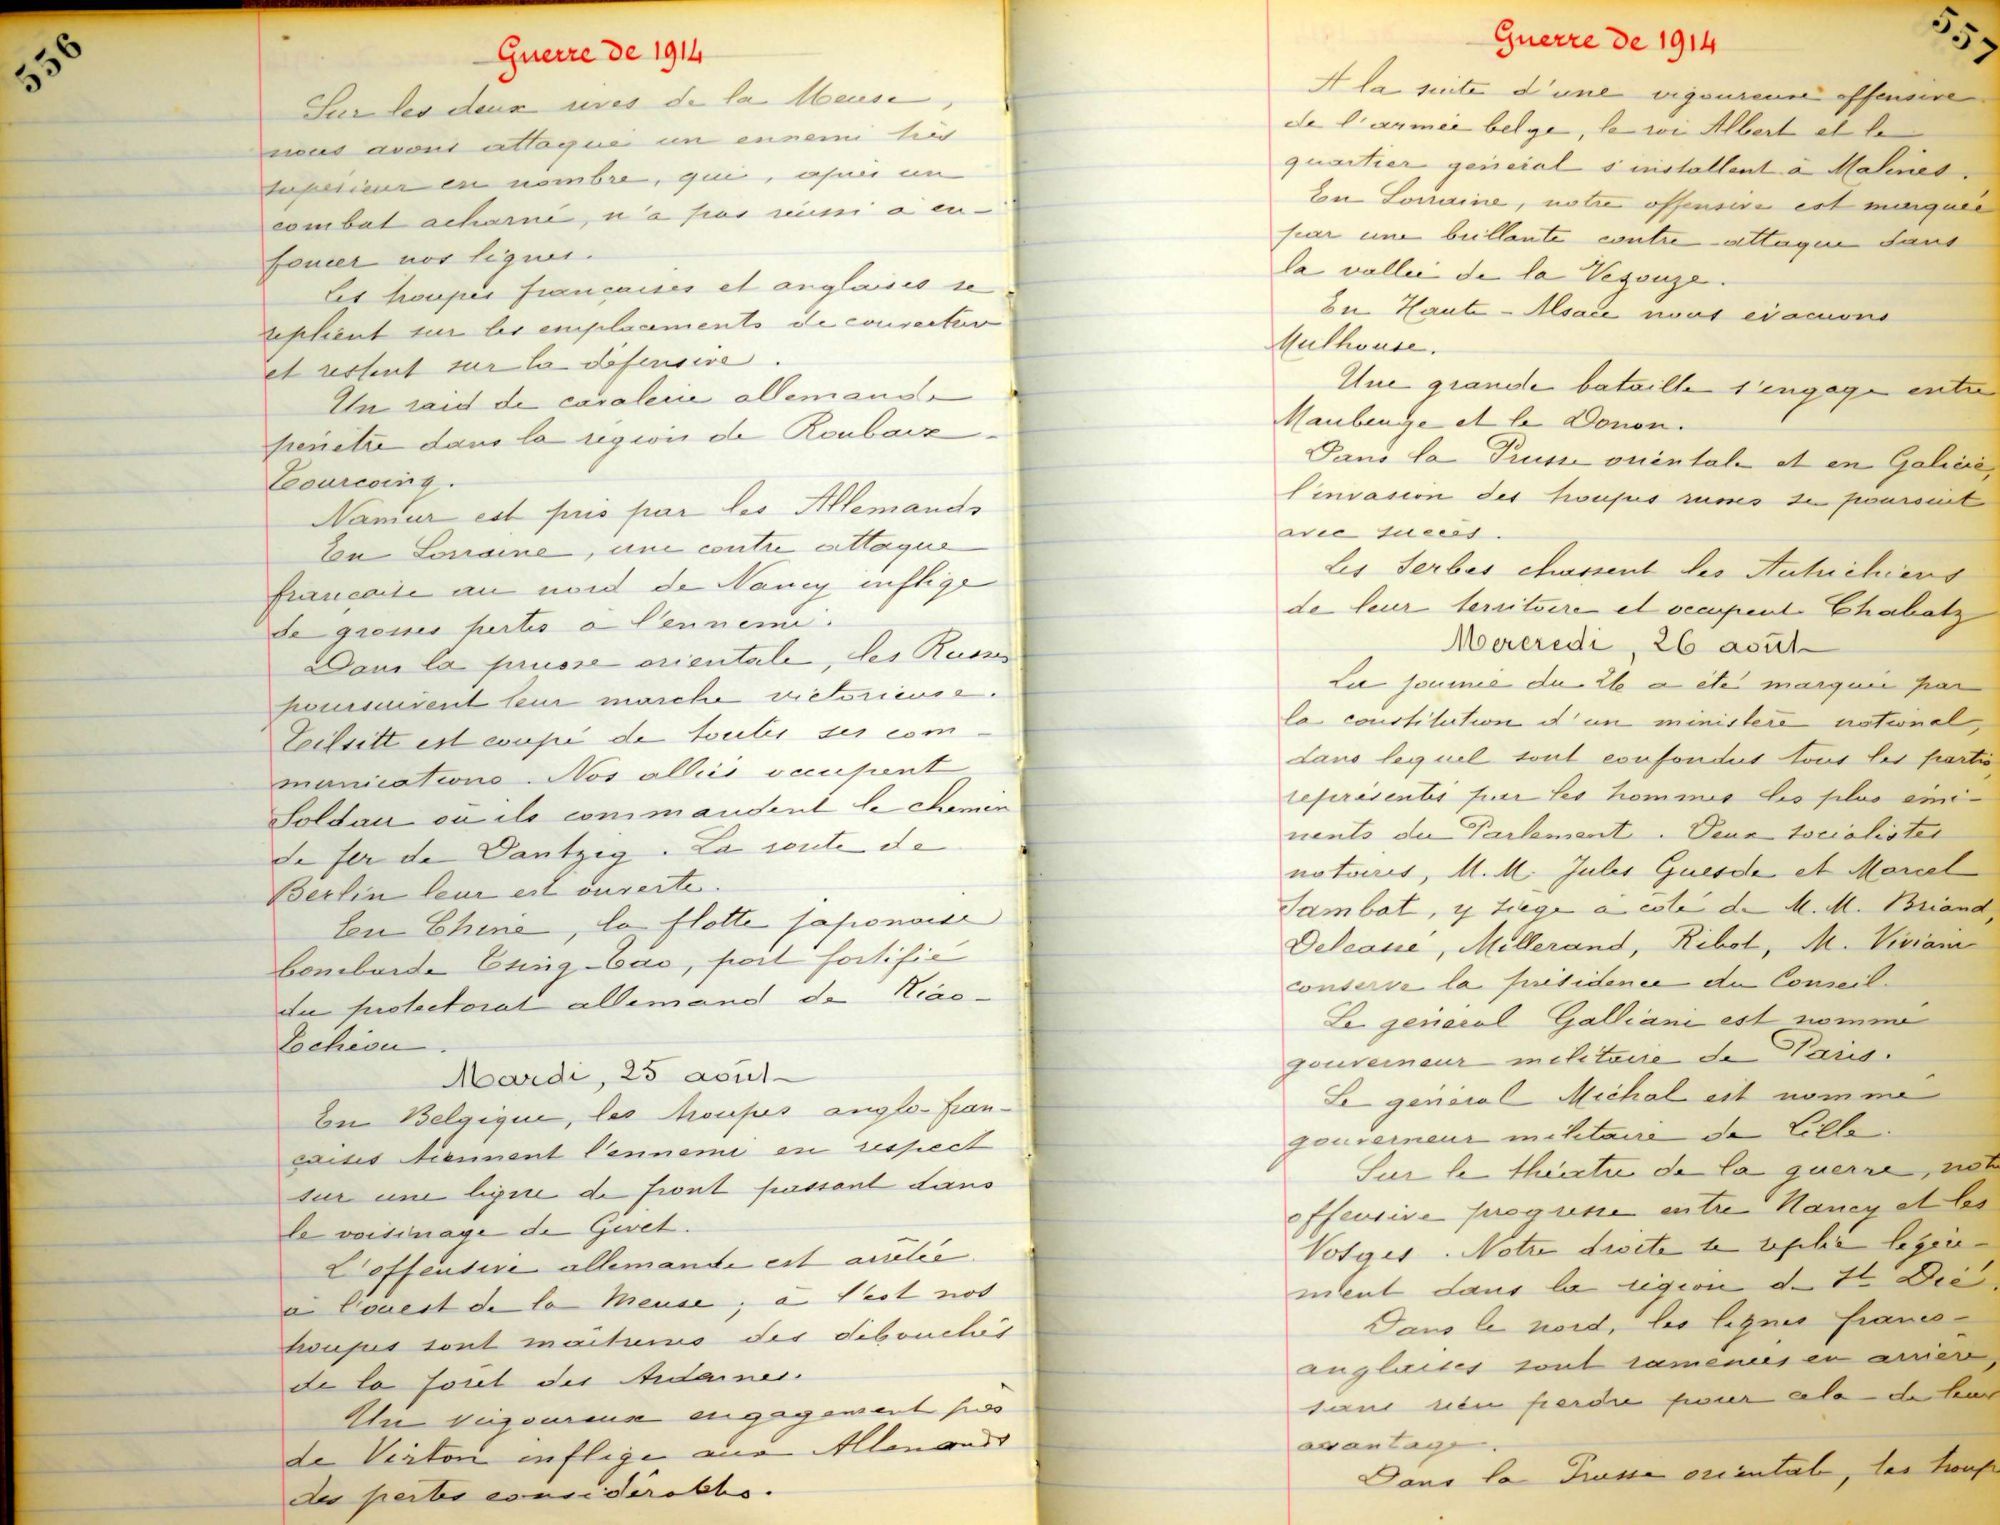 556
Guerre de 1914
Sur les deux rives de la Meuse,
nous avons attaqué un ennemi très
supérieur en nombre, qui, après un
combat acharné, n'a pas réussi à en-
foncer nos lignes.
Les troupes françaises et anglaises se
replient sur les emplacements de couverture
et restent sur la défensive.
Un raid de cavalerie allemande
pénètre dans la région de Roubaix-
Tourcoing.
Namur est pris par les Allemands
En Lorraine, une contre attaque
française au nord de Nancy inflige
de grosses pertes à l'ennemi.
Dans la prusse orientale, les Russes
poursuivent leur marche victorieuse.
Tilsitt est coupé de toutes ses com-
munications. Nos alliés occupent
Soldau où ils commandent le chemin
de fer de Dantzig. La route de
Berlin leur est ouverte.
En Chine, la flotte japonaise
bombarde Tsing-Tao, port fortifié
du protectorat allemand de Kiao-
Tchéou.
Mardi, 25 août
En Belgique, les troupes anglo-fran-
çaises tiennent l'ennemi en respect
sur une ligne de front passant dans
le voisinage de Givet.
L'offensive allemande est arrêtée
à l'ouest de la Meuse; à l'est nos
troupes sont maîtresses des débouchés
de la forêt des Ardennes.
Un vigoureux engagement près
de Virton inflige aux Allemands
des pertes considérables.
557
Guerre de 1914
A la suite d'une vigoureuse offensive
de l'armée belge, le roi Albert et le
quartier général s'installent à Malines.
En Lorraine, notre offensive est marquée
par une brillante contre-attaque dans
la vallée de la Vezouze.
En Haute-Alsace nous évacuons
Mulhouse.
Une grande bataille s'engage entre
Maubeuge et le Donon.
Dans la Prusse orientale et en Galicie,
l'invasion des troupes russes se poursuit
avec succès.
Les Serbes chassent les Autrichiens
de leur territoire et occupent Chabatz
Mercredi, 26 août
La journée du 26 a été marquée par
la constitution d'un ministère national,
dans lequel sont confondus tous les partis
représentés par les hommes les plus émi-
nents du Parlement. Deux socialistes
notoires, M.M. Jules Guesde et Marcel
Sambat, y siège à côté de M.M. Briand,
Delcassé, Millerand, Ribot, M. Viviani
conserve la présidence du Conseil.
Le général Galliani est nommé
gouverneur militaire de Paris.
Le général Michal est nommé
gouverneur militaire de Lille.
Sur le théâtre de la guerre, notre
offensive progresse entre Nancy et les
Vosges. Notre droite se replie légère-
ment dans la région de St Dié.
Dans le nord, les lignes franco-
anglaises sont ramenées en arrière,
sans rien perdre pour cela de leur
avantage.
Dans la Prusse orientale, les troup